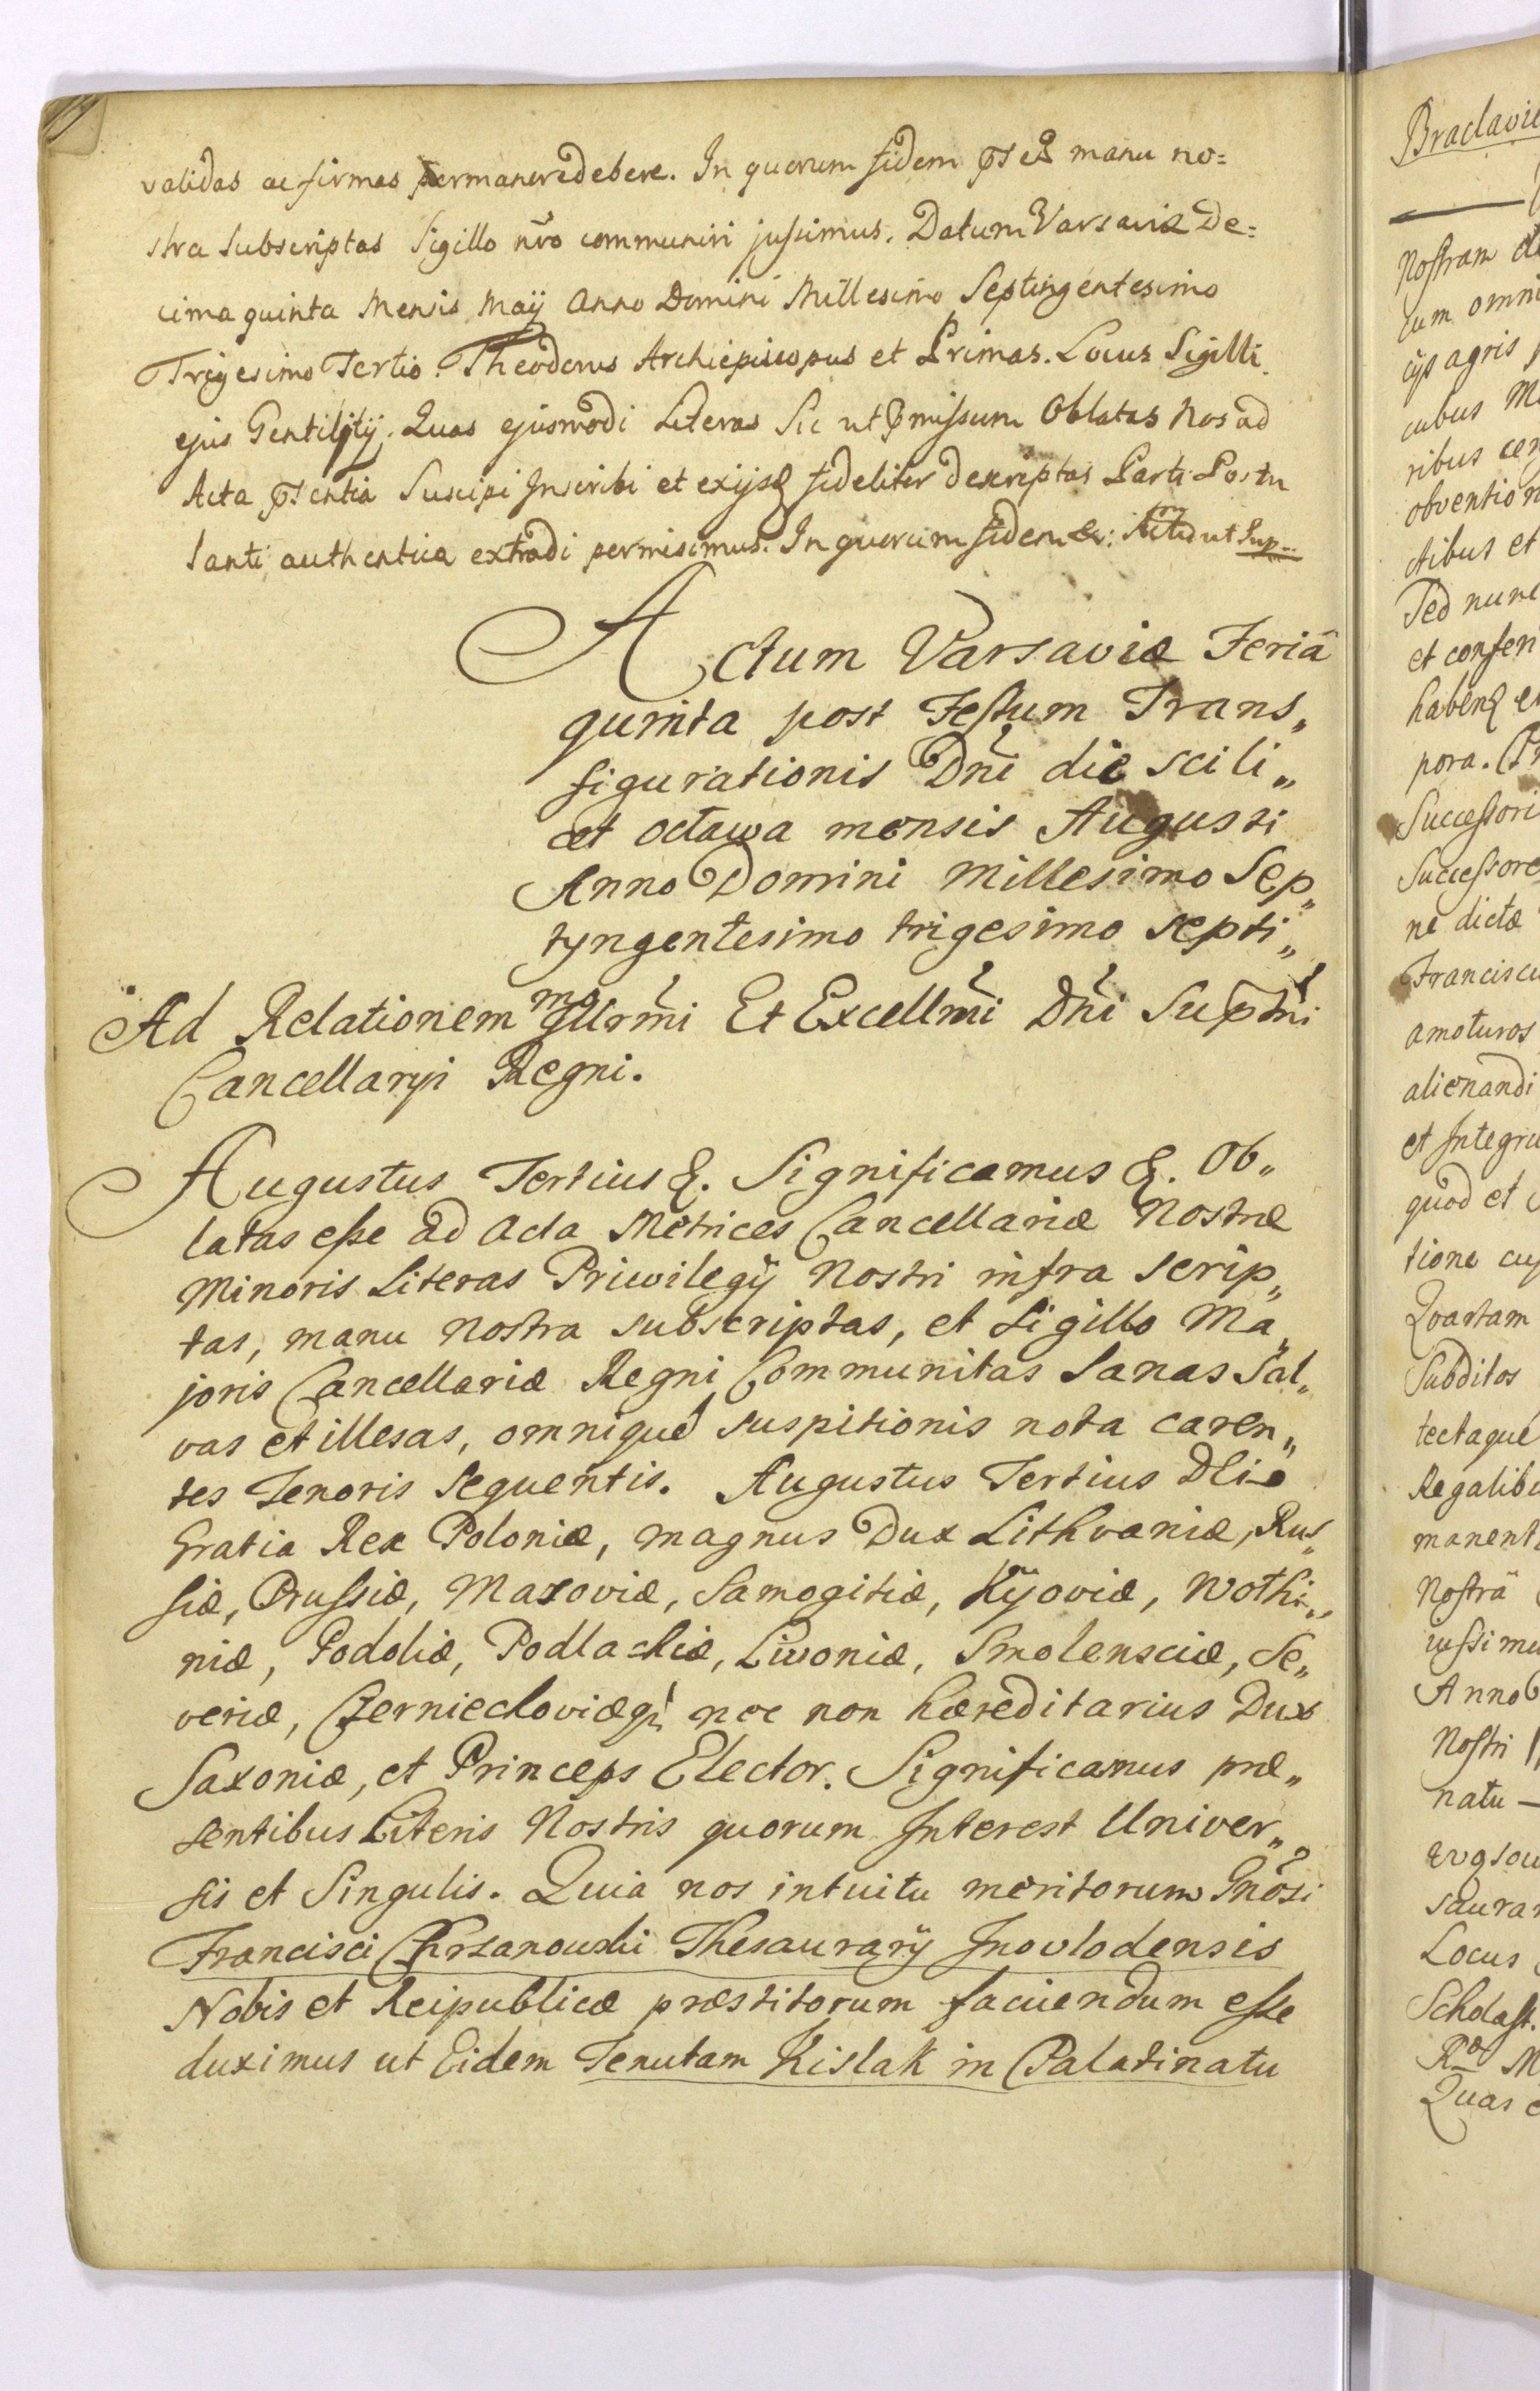 validas ac firmas permanere debere. In quorum fidem manu no=
stra Subscriptas Sigillo nro communiri jussimus. Datum Varsaviæ De=
cima quinta Mensis Maij Anno Domini Millesimo Septingentesimo
Trigesimo Tertio. Theodorus Archiepiscopus et Primas. Locus Sigilli
ejus Gentilitij. Quas ejusmodi Literas Sic ut missum Oblatas Nos ad
Acta Suscipi Inscribi et exijsq fideliter descriptas Parti Postu
lanti authentica extradi permisimus. In quorum fidem &: Actũ ut Sup
Actum Varsaviæ Feriâ
quinta post Festum Trans„
figurationis Dni die scili„
cet octawa mensis Augusti
Anno Domini Millesimo Sep„
tyngentesimo trigesimo septi„
mo
Ad Relationem Illrmi Et Excellmi Dni Supmi
Cancellaryi Regni.
Augustus Tertius &. Significamus &. Ob„
latas esse ad Acta Metrices Cancellariæ Nostræ
Minoris Literas Priwilegij Nostri infra scrip„
tas, manu Nostra subscriptas, et Sigillo Ma„
joris Cancellariæ Regni Communitas Sanas Sal„
vas et illesas, omnique suspitionis nota caren„
tes Tenoris sequentis. Augustus Tertius DEi
Gratia Rex Poloniæ, Magnus Dux Lithvaniæ, Rus„
siæ, Prussiæ, Mazoviæ, Samogitiæ, Kijoviæ, Wolhi„
niæ, Podoliæ, Podlachiæ, Livoniæ, Smolensciæ, Se„
veriæ, Czerniechoviæq nec non hæreditarius Dux
Saxoniæ, et Princeps Elector. Significamus præ„
sentibus Literis Nostris quorum Interest Univer„
sis et Singulis. Quia nos intuitu meritorum Gnosi
Francisci Chrzanowski Thesaurarij Inovlodensis
Nobis et Reipublicæ præstitorum faciendum esse
duximus ut Eidem Tenutam Kislak in Palatinatu
Nostram
cum omni
ijs agris
cubus
ribus
obvention
ctibus et
Sed nunc
et consen
pora.
Successori
Successore
ne dictæ
Franciscu
amoturos
alienandi
et Integru
quod et
tione
Quartam
Subditos
tectaque
Regalibu
manent
Nostrâ
iussimu
Anno
Nostri
natu
Locus
Scholast.
Quas